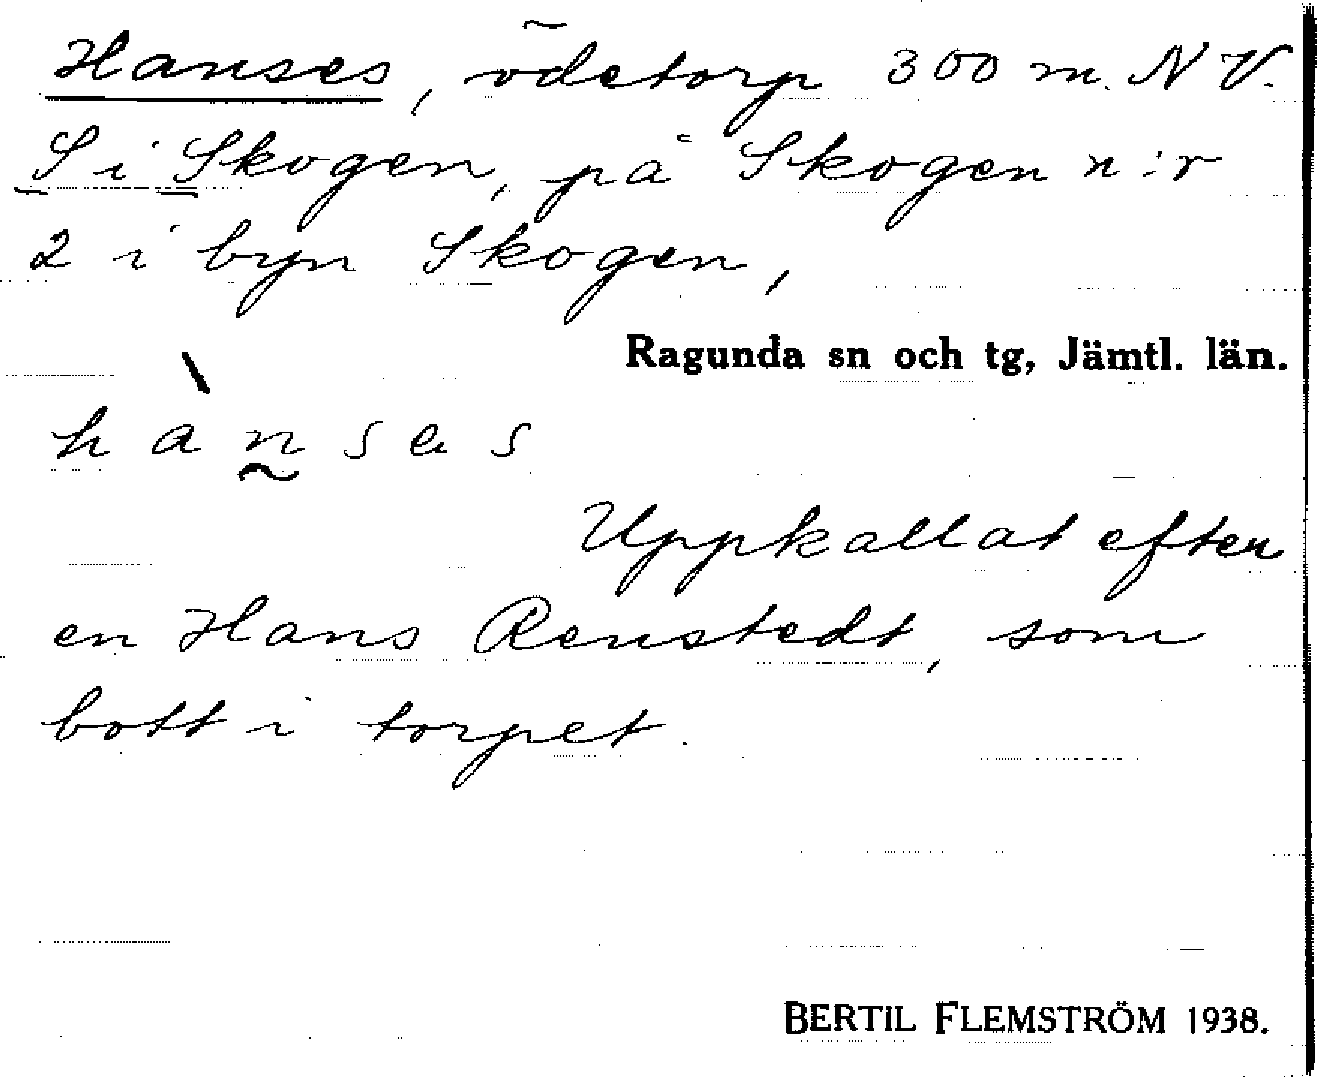 Hanses, ödetorp 300 m. NV.
S i Skogen, på Skogen n:r
2 i byn Skogen,
Ragunda sn och tg, Jämtl. län.
hànsas
Uppkallat efter
en Hans Renstedt, som
bott i torpet.
BERTIL FLEMSTRÖM 1938.